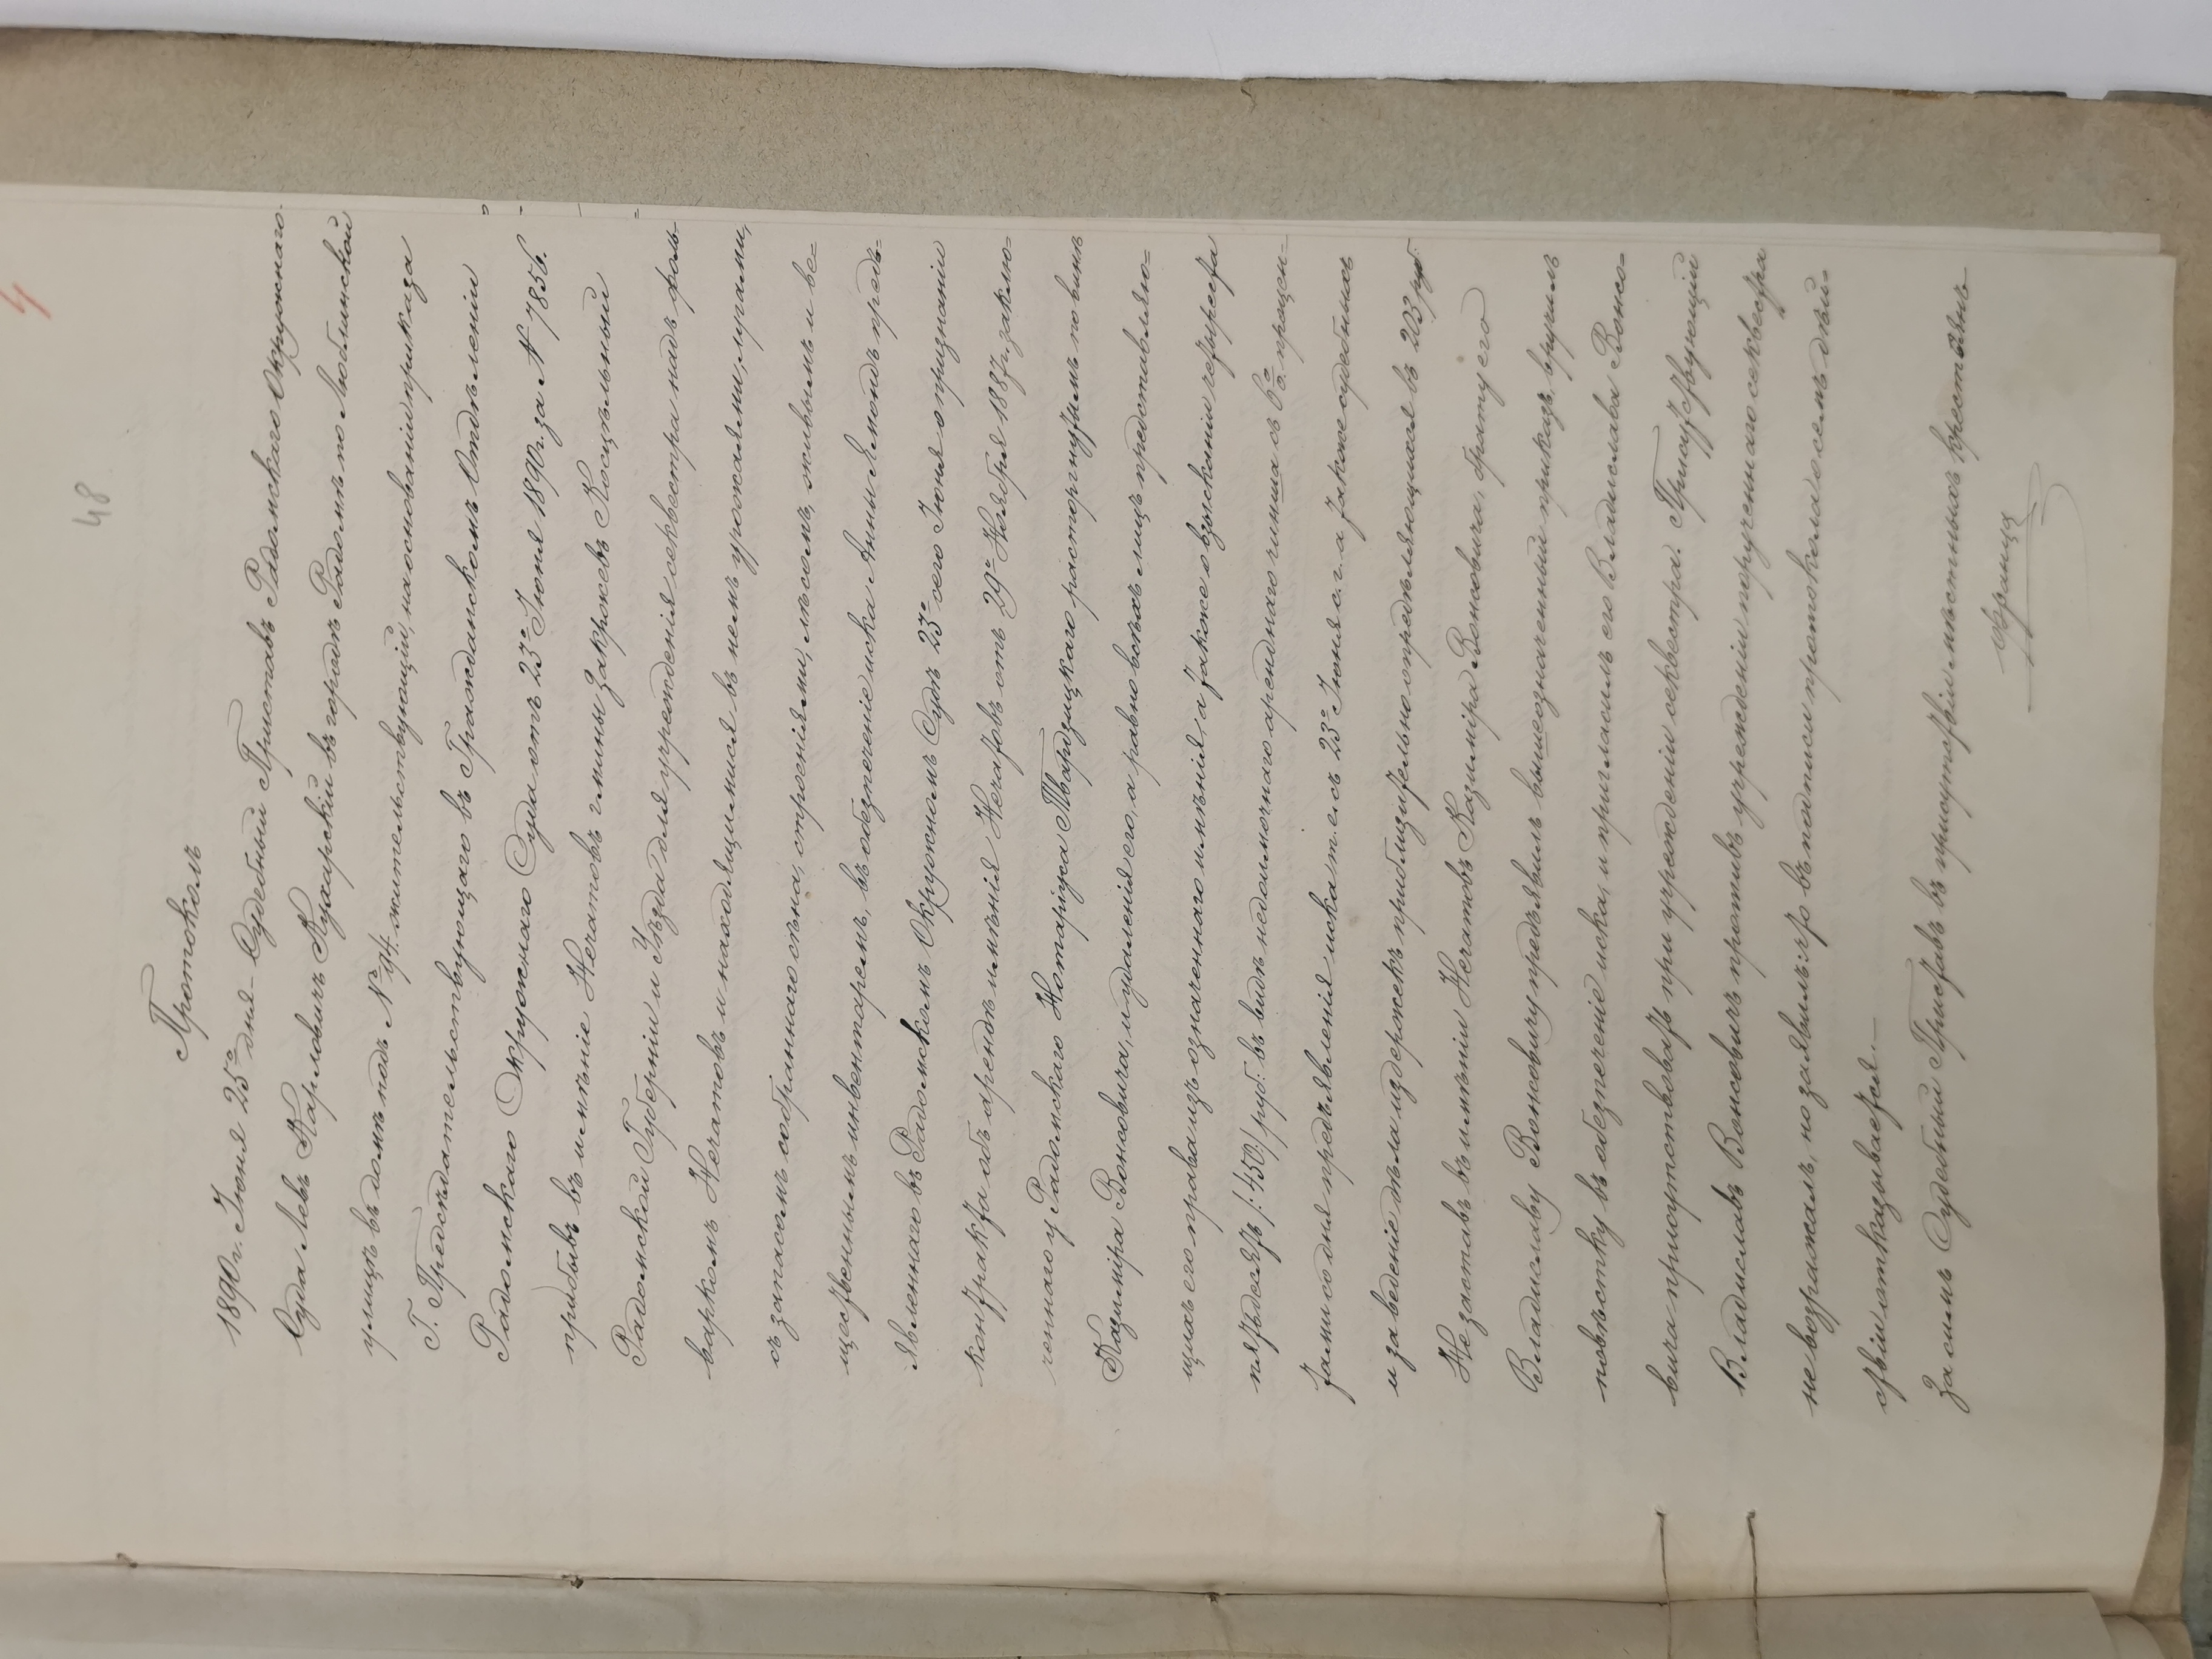 4
48
Протоколъ
1890 г. Іюня 25го дня – Судебный Приставъ Радомскаго Окружнаго
Суда Левъ Карловичъ Кухарскій въ городѣ Радомѣ по Люблинской
улицѣ въ домѣ подъ № 94. жительствующій, на основаніи приказа
Г. Предсѣдательствующаго въ Гражданскомъ Отдѣленіи
Радомскаго Окружнаго Суда отъ 23го Іюня 1890 г. за № 7856.
прибывъ въ имѣніе Нечатовъ гмины Закржевъ Косцѣльный
Радомской Губерніи и Уѣзда для учрежденія секвестра надъ фоль-
варкомъ Нечатовъ и находящимися въ немъ урожаями, лугами,
съ запасомъ собраннаго сѣна, строеніями, лѣсомъ, живымъ и ве=
щественнымъ инвентаремъ, въ обезпеченіе иска Анны Ямондъ предъ=
явленнаго въ Радомскомъ Окружномъ Судѣ 23го сего Іюня о признаніи
контракта объ арендѣ имѣнія Нечатовъ отъ 29го Ноября 1887 г. заклю=
ченнаго у Радомскаго Нотаріуса Твардзицкаго расторгнутымъ по винѣ
Казиміра Вонсовича, и удаленія его, а равно всѣхъ лицъ представляю=
щихъ его права изъ означеннаго имѣнія, а также о взысканіи четыреста
пятьдесятъ /:450/ руб: въ видѣ недоимочнаго аренднаго чинша съ 6% процен=
тами со дня предъявленія иска т. е. съ 23го Іюня с. г. а также судебныхъ
и за веденіе дѣла издержекъ приблизительно опредѣляющихся въ 203 руб.
Не заставъ въ имѣніи Нечатовъ Казиміра Вонсовича, брату его
Владиславу Вонсовичу предъявилъ вышеозначенный приказъ, вручилъ
повѣстку въ обезпеченіе иска, и пригласилъ его Владислава Вонсо=
вича присутствовать при учрежденіи секвестра. Присутствующій
Владиславъ Вонсовичъ противъ учрежденія порученнаго секвестра
не возражалъ, но заявилъ что въ подписи протокола о семъ дѣй=
ствіи отказывается. –
За симъ Судебный Приставъ въ присутствіи мѣстныхъ крестьянъ
Франца